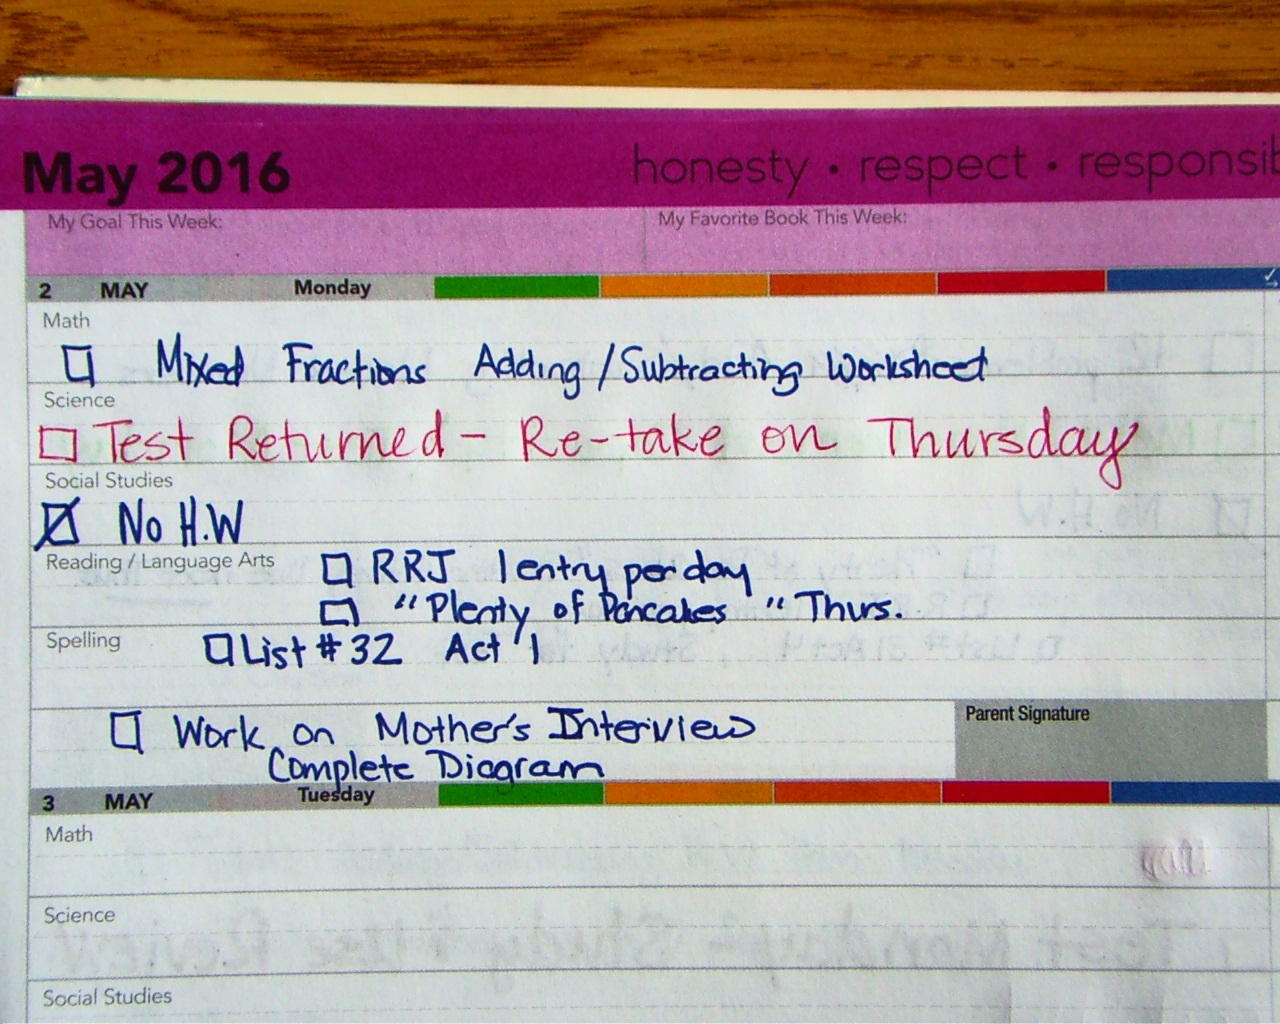 May 2016 honesty • respect • responsib
My Goal This Week: My Favorite Book This Week:
2 MAY Monday
Math
Mixed Fractions Adding/Subtracting Worksheet
Science
Test Returned - Re-take on Thursday
Social Studies
No H.W
Reading / Language Arts RRJ 1 entry per day
"Plenty of Pancakes" Thurs.
Spelling List # 32 Act 1
Work on Mother's Interview
Parent Signature
Complete Diagram
3 MAY Tuesday
Math
Science
Social Studies